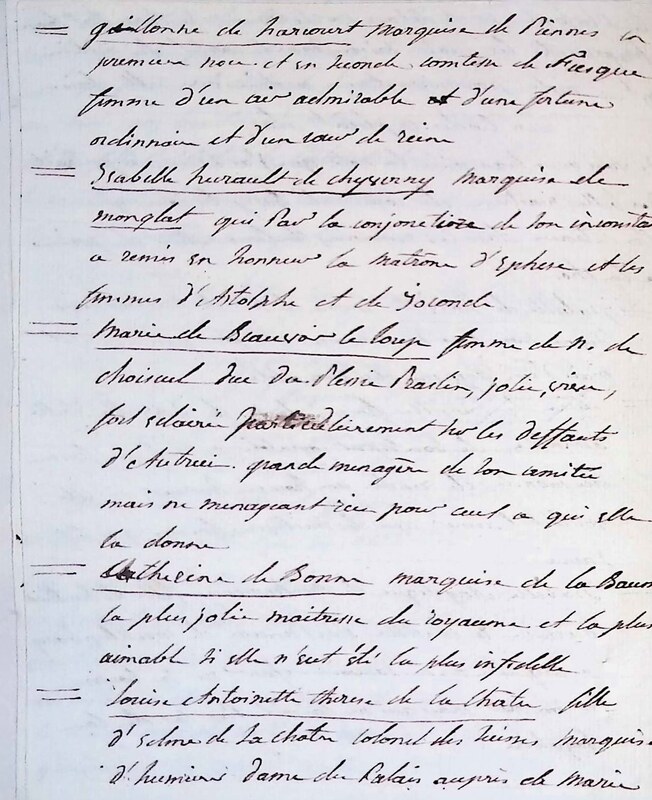 guillonne de harcourt marquise de Piennes en
premiere noce. et en seconde comtesse de Fiesque
femme d'un air admirable et d'une fortune
ordinnaire et d'un cœur de reine
Isabelle hurault de chyverny marquise de
monglat qui Par la conjonction de son inconsta
a remis en honneur la matrone d'Ephese et les
femmes d'Astolphe et de Joconde
marie de Beauvoir le loup femme de n. de
choiseul duc du Plessis Praslin, jolie,
fort eclairée particulierement sur les deffauts
d'Autrui. grande menagere de son amitié
mais ne menageant rien pour ceux a qui elle
la donne
Catherine de Bonne marquise de la Baum
la plus jolie maitresse du royaume et la plus
aimable si elle n'eut été la plus infidelle
Louise Antoinette therese de la chatre fille
d'Edme de la chatre colonel des suisses marquise
d'humieres dame du Palais auprès de Marie